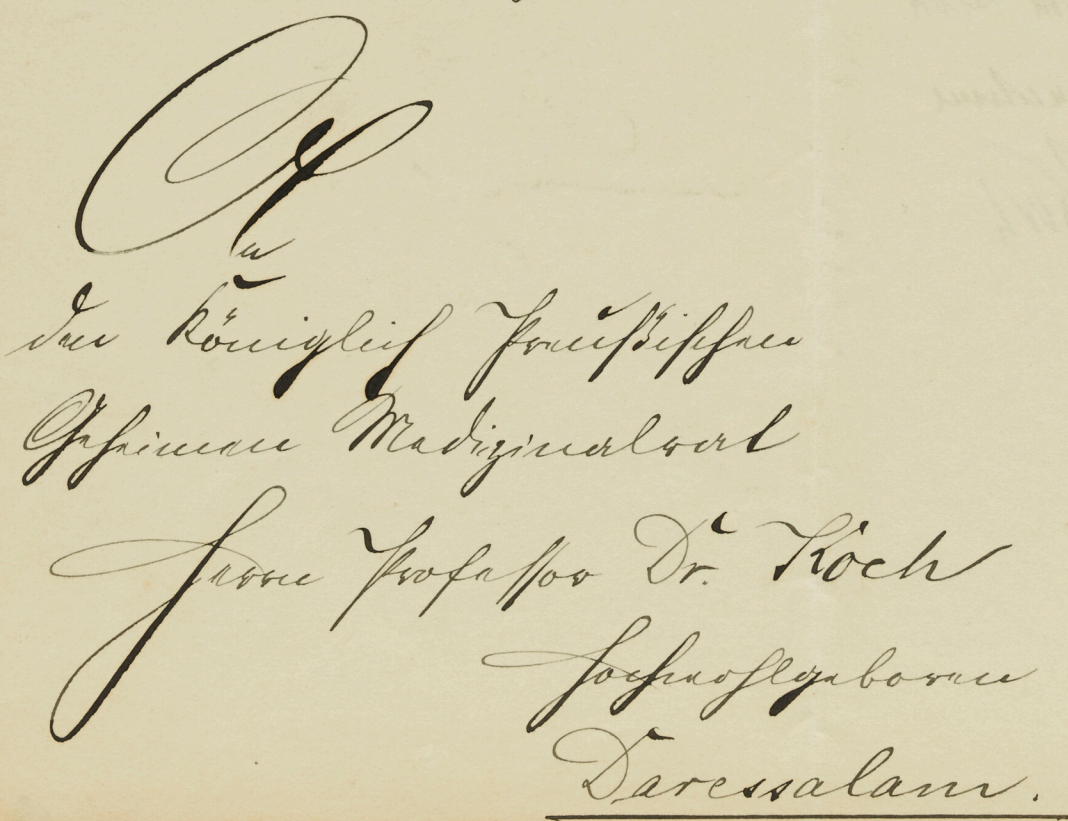 An
den Königlich Preußischen
Geheimen Medizinalrat
Herrn Professor Dr. Koch
Hochwohlgeboren
Daressalam.